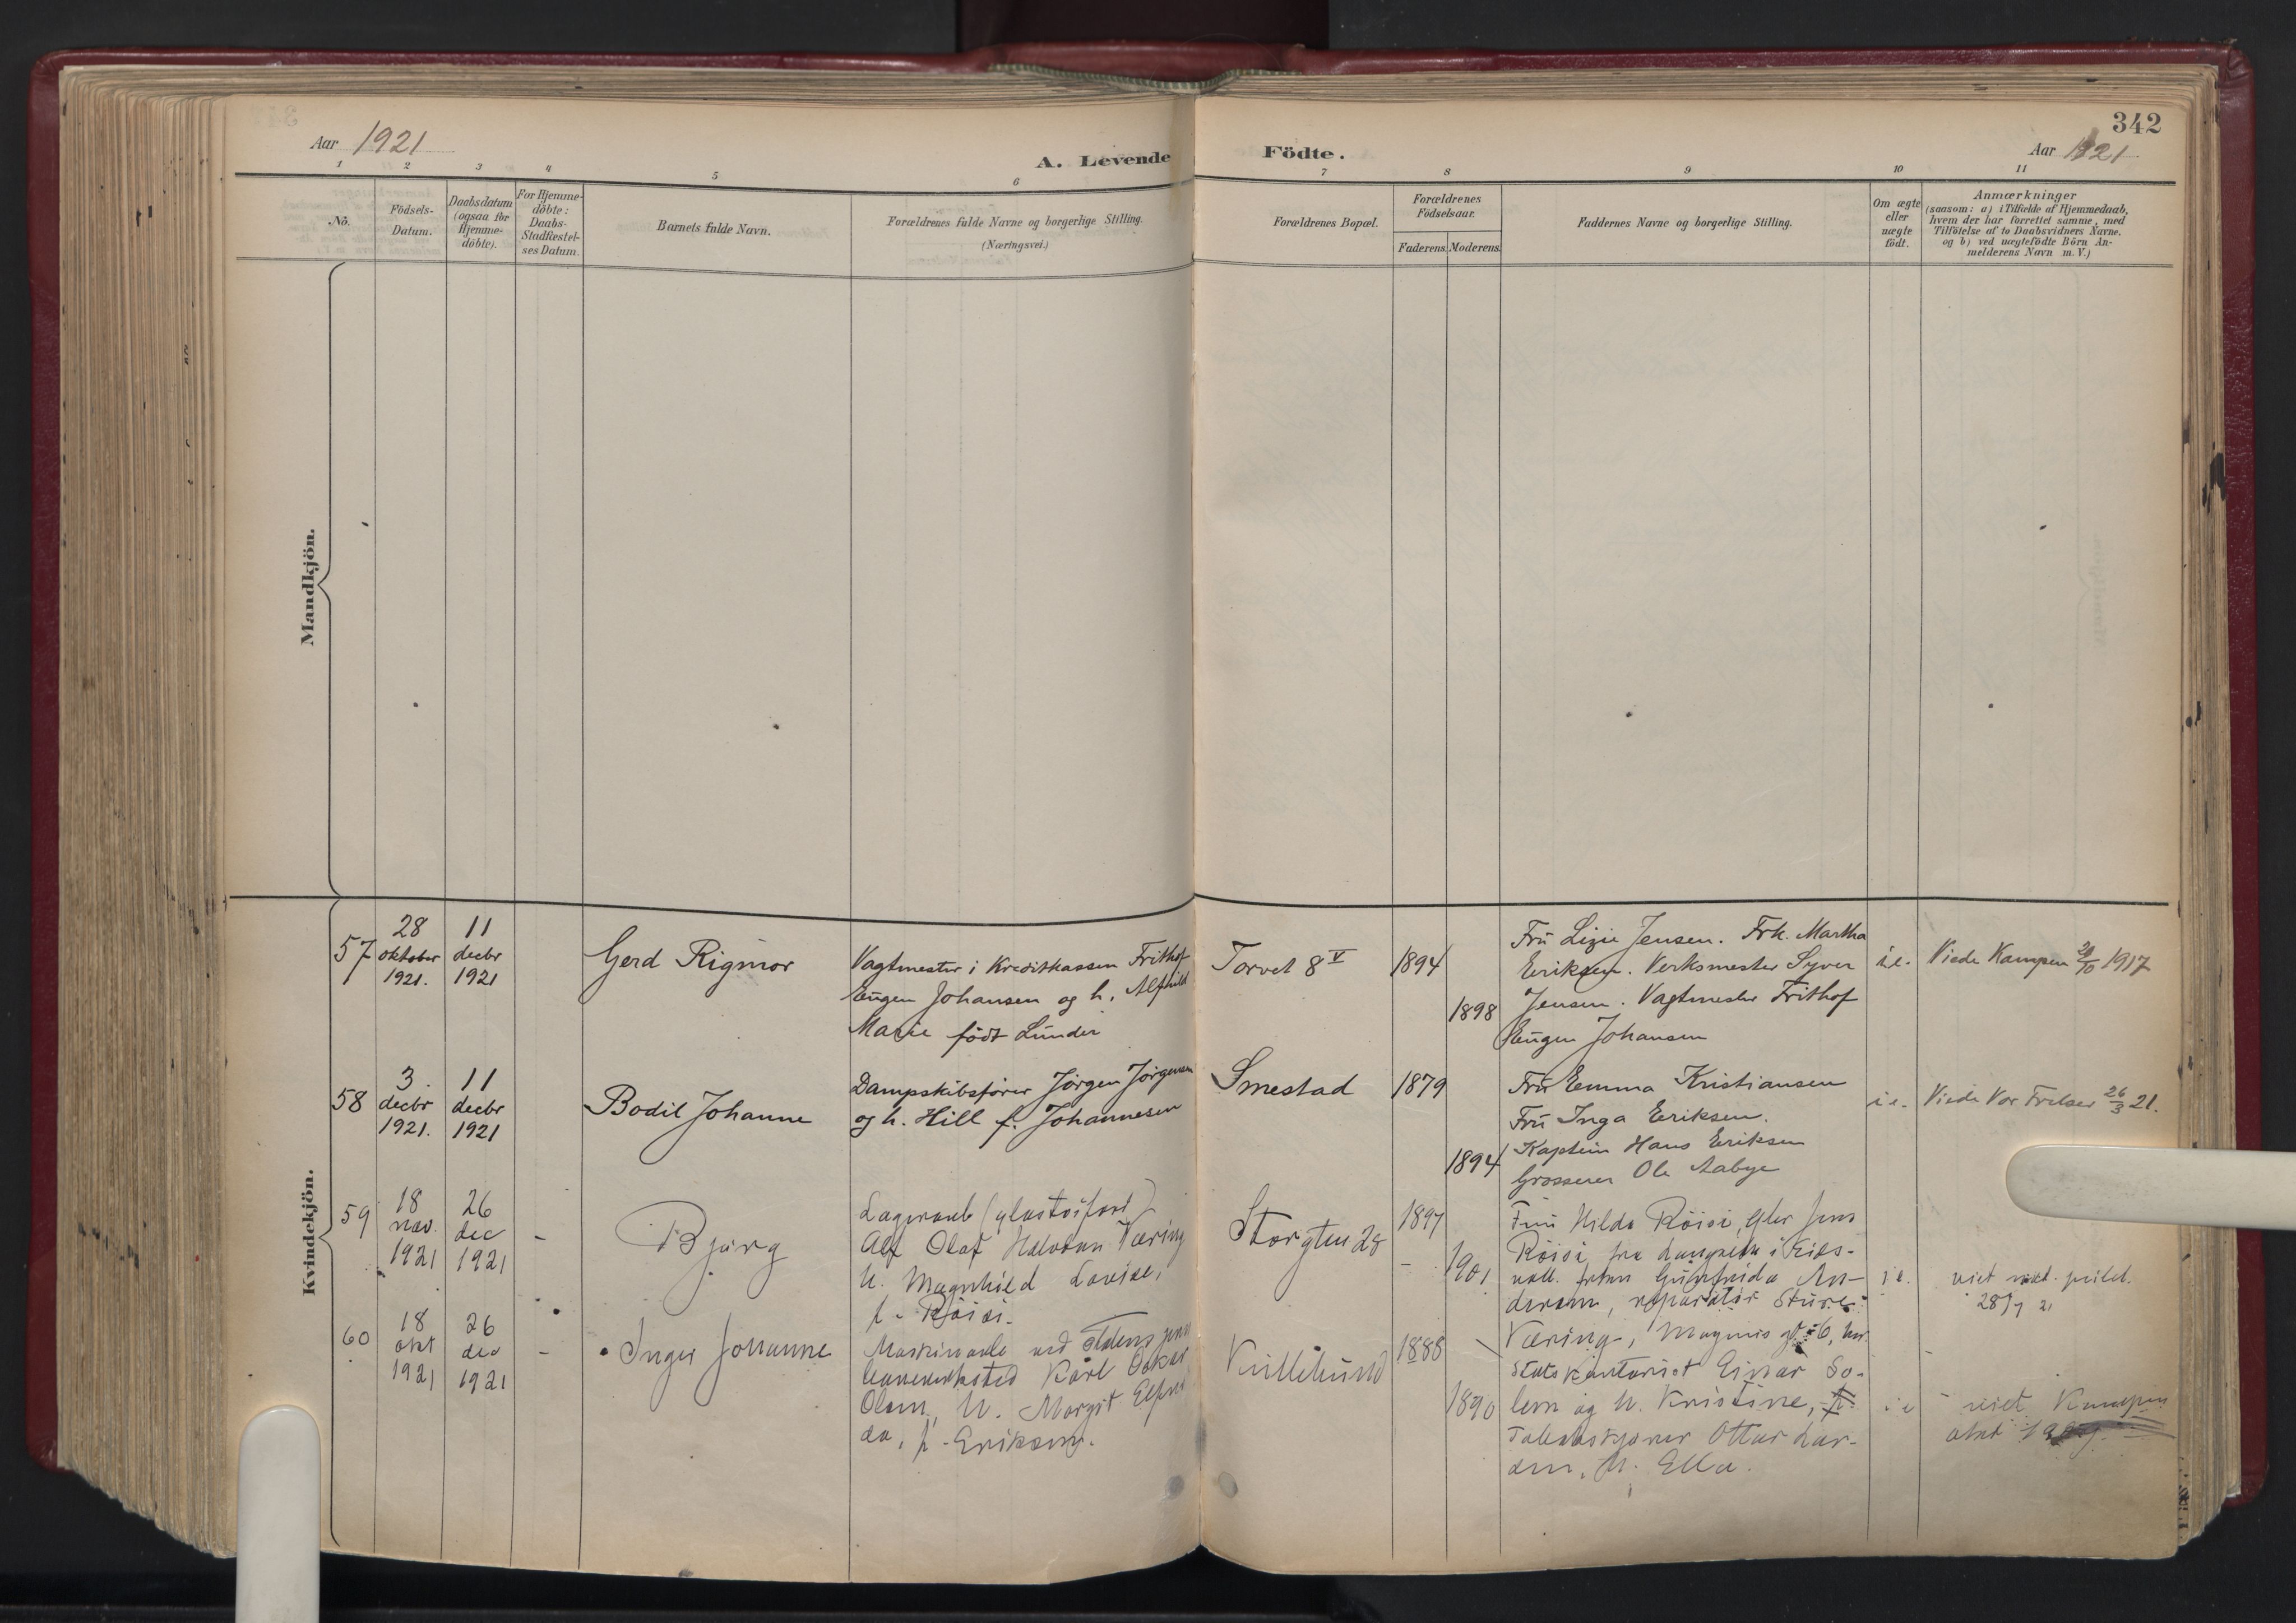 342
Aar 1921
A. Levende Födte.
Aar 1921
1 2 3 4 5 6 7 8 9 10 11
No.
Födsels-
Datum.
Daabsdatum
(ogsaa for
Hjemme-
döbte).
For Hjemme-
döbte:
Daabs-
Stadfæstel-
ses Datum.
Barnets fulde Navn.
Forældrenes fulde Navne og borgerlige Stilling.
(Næringsvei.)
Forældrenes Bopæl.
Forældrenes
Födselsaar.
Faderens. Moderens.
Faddernes Navne og borgerlige Stilling.
Om ægte
eller
uægte
födt.
Anmærkninger
(saasom: a) i Tilfælde af Hjemmedaab,
hvem der har forrettet samme, med
Tilföielse af to Daabsvidners Navne.
og b) ved uægtefödte Börn An-
melderens Navn m. V.)
Mandkjön.
Kvindekjön.
57
28
oktober
1921.
11
decbr
1921
Gerd Rigmor
Vagtmester i Kreditkassen Frithof
Eugen Johansen og h. Alfhild
Marie født Lunder
Torvet 8 V
1894
1898
Fru Lizie Jensen. Frk. Martha
Eriksen. Verksmester Syver
Jensen. Vagtmester Frithof
Eugen Johansen
i.e.
Viede Kampen 20/10 1917
58
3.
decbr
1921.
11
decbr
1921
Bodil Johanne
Dampskibsfører Jørgen Jørgensen
og h. Hill f. Johannesen
Smestad
1879
1894
Fru Emma Kristiansen
Fru Inga Eriksen.
Kaptein Hans Eriksen
Grosserer Ole Aabye
i.e.
Viede Vor Frelser 26/3 21.
59
18
nov.
1921
26
dec
1921
-
Bjørg
Lagerarb
Alf Olaf Halvdan Væring
h. Magnhild Lovise,
f. Röisi.
Storgten 28
1897
1901
Fru Hilda Röisi, Jens
Röisi, fra i Eids-
voll. An-
dersen, reparatør Sture
Væring, Magnus gt. 6,
i e.
viet
28/7 21
60
18
okt
1921
26
dec
1921
-
Inger Johanne
Maskinarb ved Statens
Karl Oskar
Olsen, h. Margit
da, f. Eriksen.
1888
1890
Statskontorist Einar So-
lem og h. Kristine,
Ottar Lar-
sen, h. Ella.
i e
viet Kampen